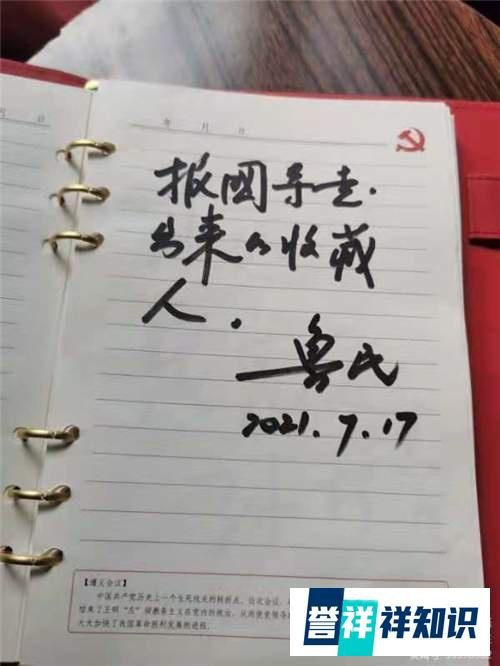 年 月 日
报国寺走
出来的收藏
人.
鲁氏
2021.7.17
【遵义会议】
中国共产党历史上一个生死攸关的转折点。这次会议,
结束了王明“左”倾教条主义在党内的统治,从而使党领导
大大加快了我国革命胜利发展的进程。
誉祥祥知识